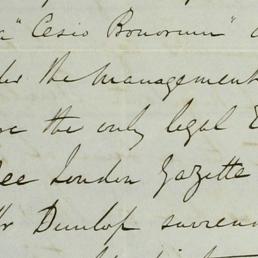 a "Cesio Bonorum"
der the management
the only legal E
see London Gazette
Mr Dunlop surren